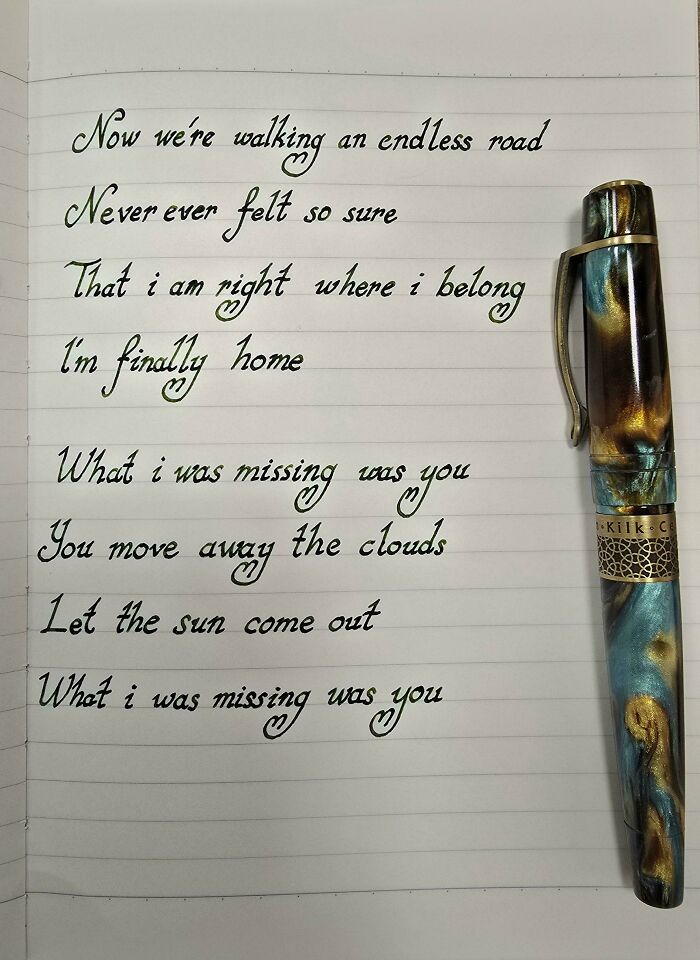 Now we're walking an endless road
Never ever felt so sure
That i am right where i belong
I'm finally home
What i was missing was you
You move away the clouds
Let the sun come out
What i was missing was you
Kilk